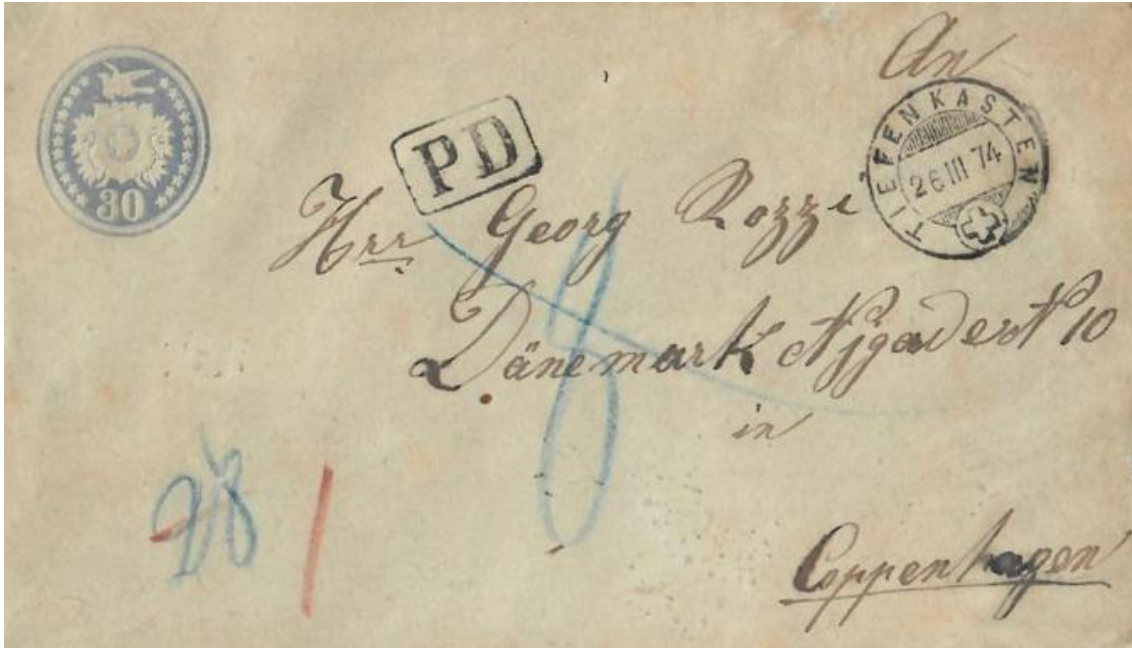 An
30
PD
TIEFENKASTEN
26 III 74
Herr Georg Rozzi
Dänemark Njgade No 10
in
Coppenhagen